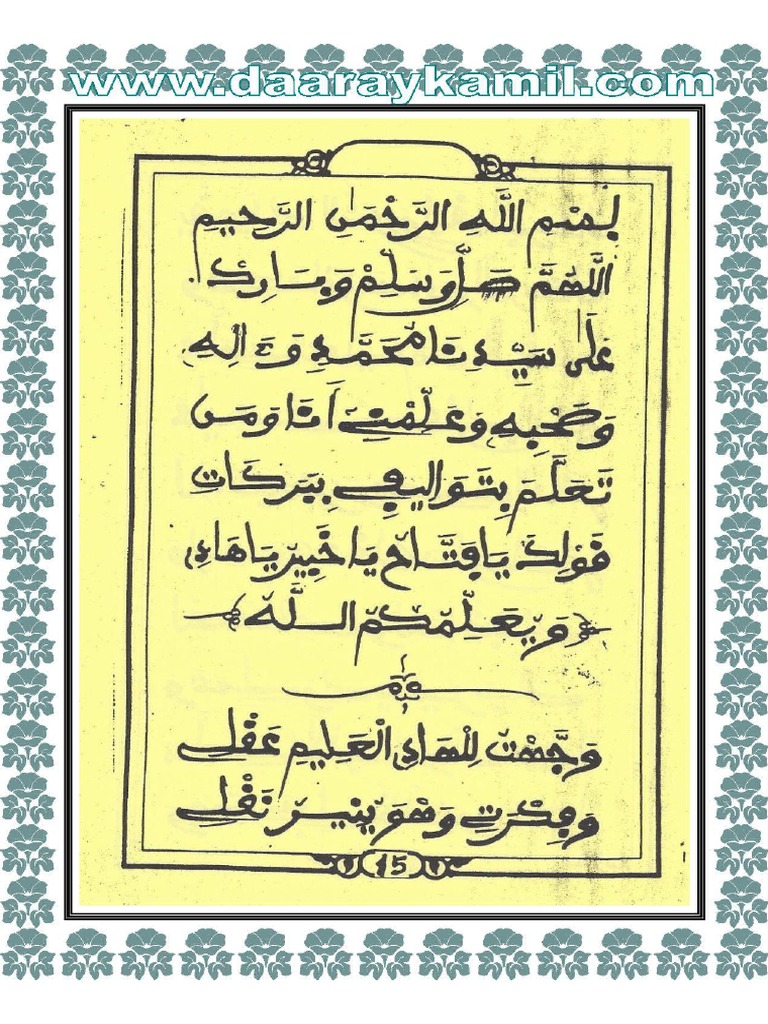 www.daaraykamil.com
بِسْمِ اللَّهِ الرَّحْمَٰنِ الرَّحِيمِ
اللَّهُمَّ صَلِّ وَسَلِّمْ وَبَارِكْ
عَلَىٰ سَيِّدِنَا مُحَمَّدٍ وَءَالِهِ
وَصَحْبِهِ وَعَلِّمْنِي أَنَا وَمَن
تَعَلَّمَ بِتَوَالِيفِي بِبَرَكَاتِ
قَوْلِكَ يَا فَتَّاحُ يَا خَبِيرُ يَا هَادِي
﴿وَيُعَلِّمُكُمُ اللَّه﴾
وَجَّهْتُ لِلْهَادِي الْعَلِيمِ عَقْلِي
وَفِكْرَتِي وَهْوَ يُنِيرُ نَقْلِي
15